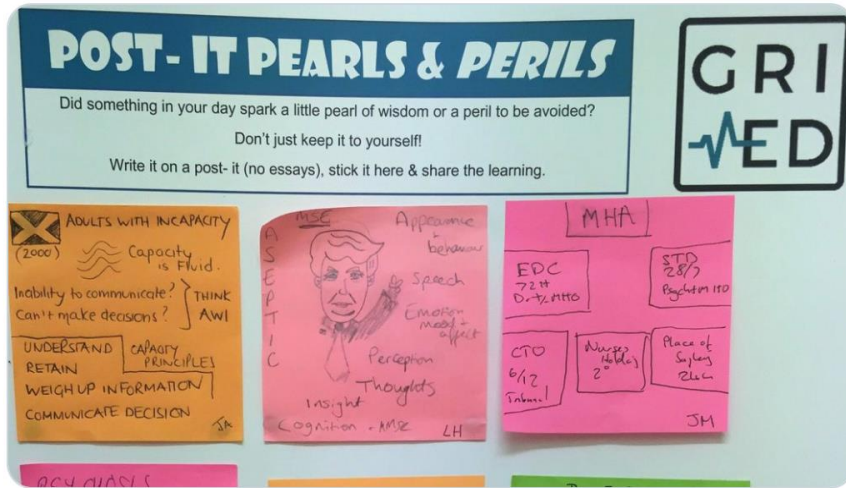 POST- IT PEARLS & PERILS
Did something in your day spark a little pearl of wisdom or a peril to be avoided?
Don't just keep it to yourself!
Write it on a post- it (no essays), stick it here & share the learning.
GRI
ED
ADULTS WITH INCAPACITY
(2000)
Capacity
is Fluid.
Inability to communicate?
Can't make decisions?
THINK
AWI
UNDERSTAND
RETAIN
WEIGH UP INFORMATION
COMMUNICATE DECISION
CAPACITY
PRINCIPLES
JM
MSE
ASEPTIC
Appearance
+
behaviour
Speech
Emotion
mood +
affect
Perception
Thoughts
Insight
Cognition - AMSE
LH
MHA
EDC
72H
STD
28/7
CTO
6/12
Nurses
Holding
2°
Place of
JM